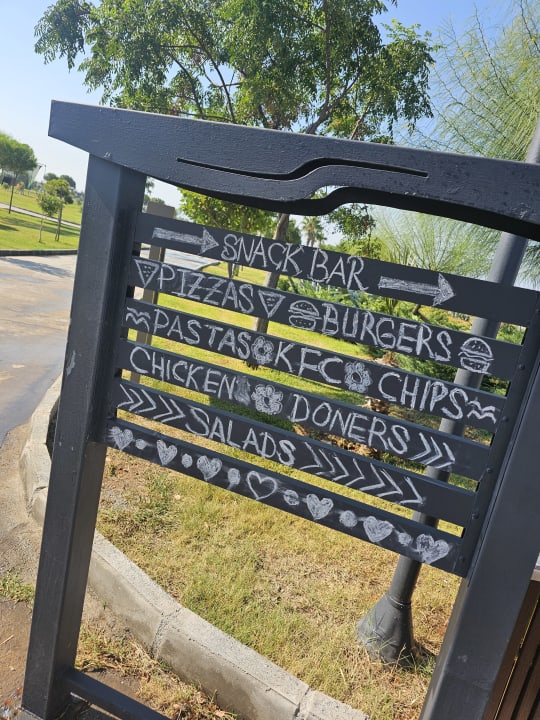 SNACK BAR
PIZZAS BURGERS
PASTAS KFC CHIPS
CHICKEN DONERS
SALADS